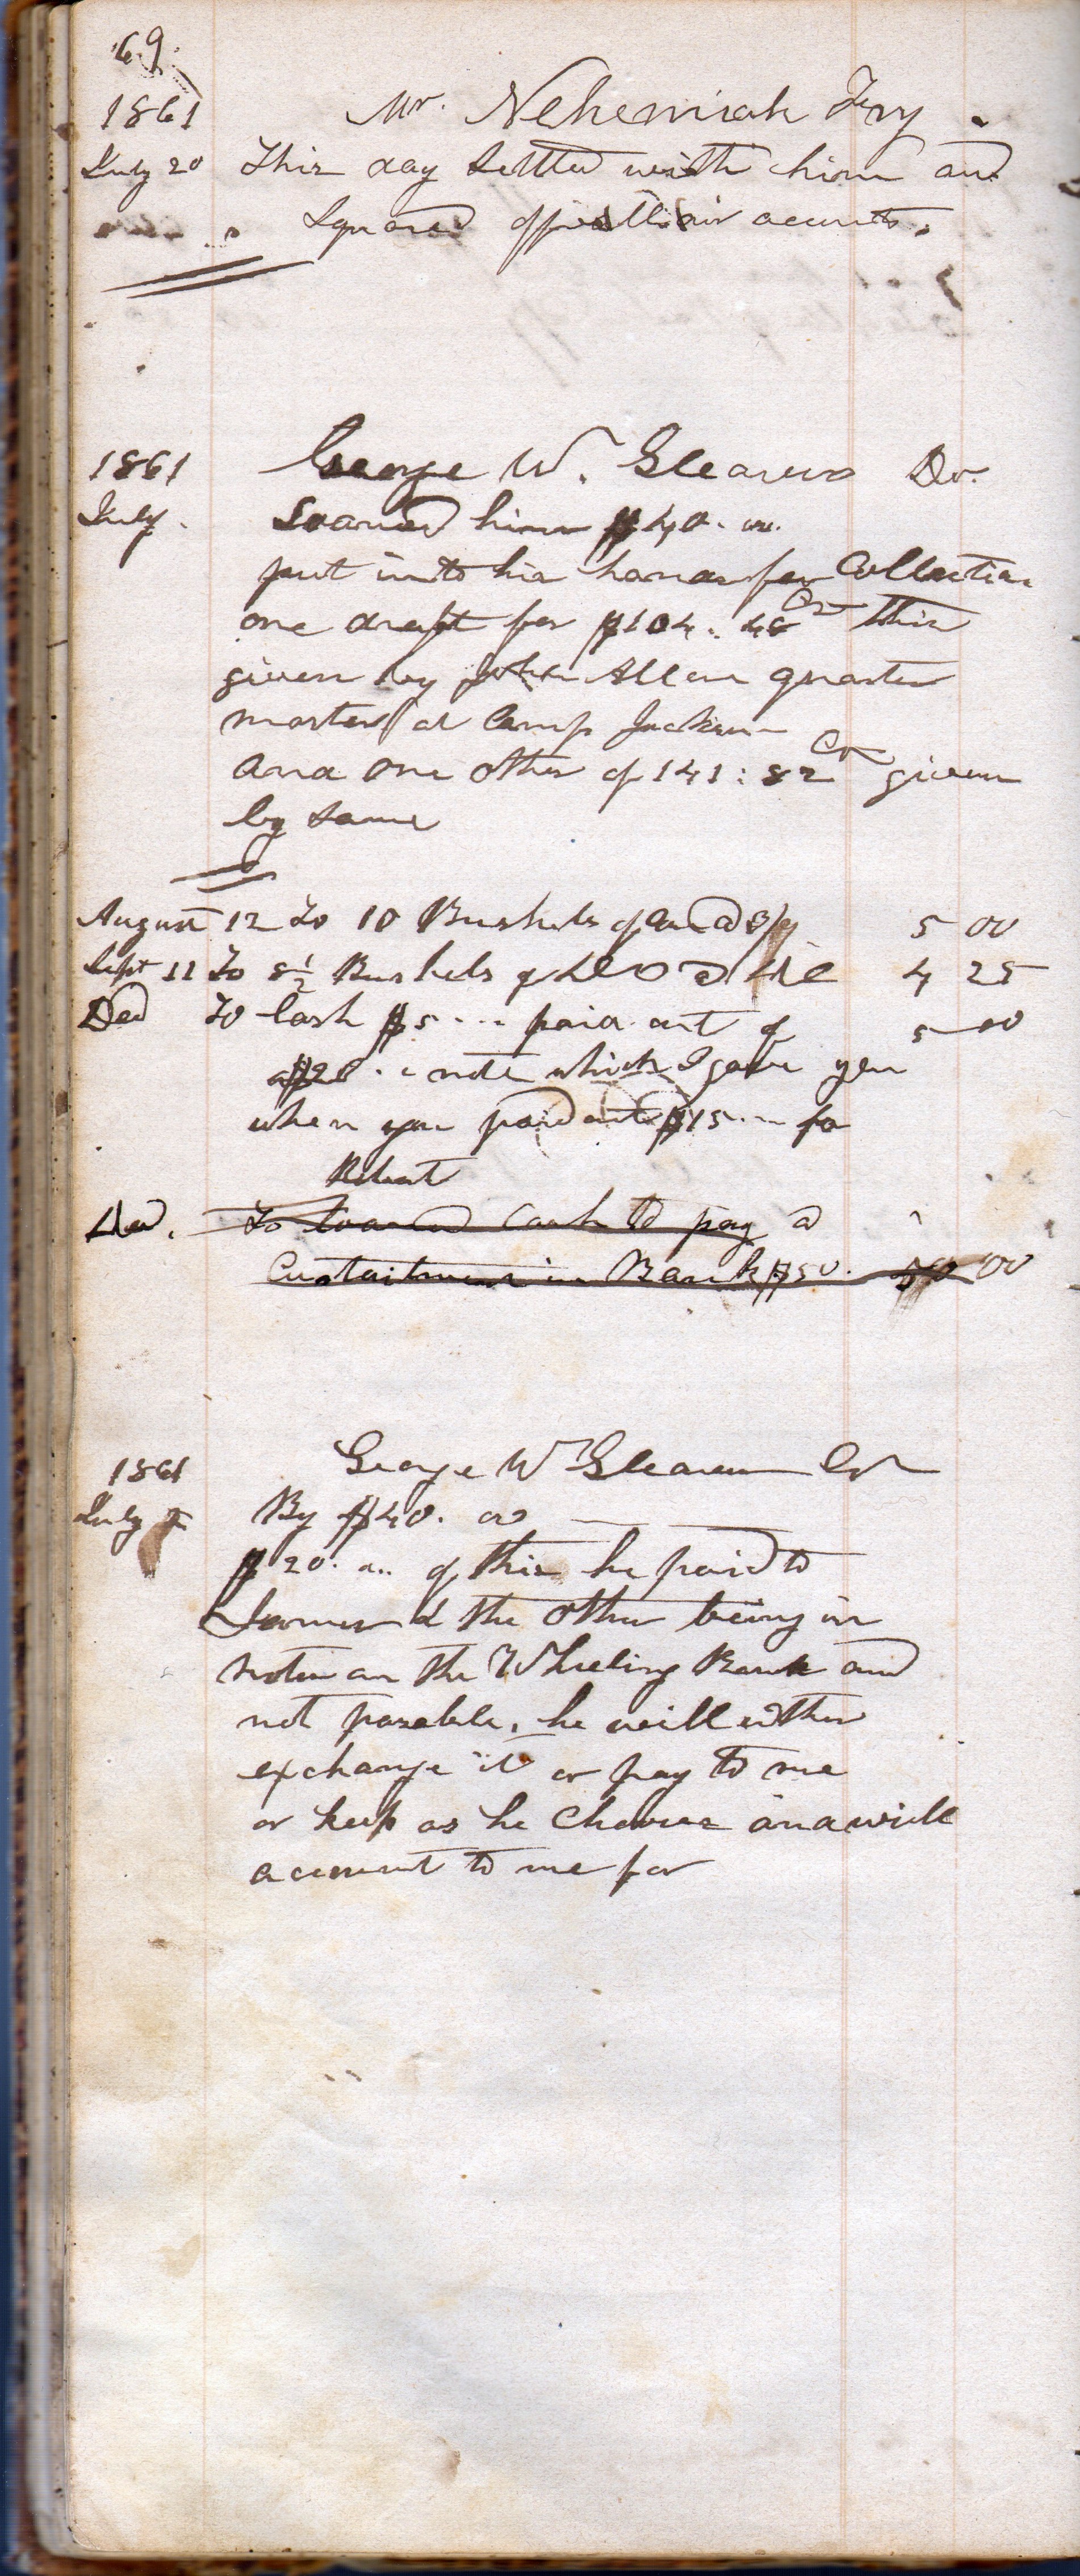 69.
1861 Mr. Nehemiah Fry
July 20 This day settled with him and
Squared off all our acounts.
1861 George W. Gleaves Dr.
July. Loaned him $40. 00.
put into his hands for Collection
one draft for $104. 48 cts this
given by John Allen quarter
master at Camp Jackson
and one other of 141: 82 cts given
by same
August 12 To 10 Bushels of Oats @ 3/ 5 00
Sept 11 To 8½ Bushels of do @ 4 25
Decd To Cash $5 -- paid out of 5 00
a $20. note which I gave you
when you paid out $15 -- for
Dec. To loaned Cash to pay a
Curtailment in Bank $50. 50 00
1861 George W Gleaves Cr
July By $40. 00
$20. 00 of this he paid to
James & the other being in
notes on the Wheeling Bank and
not passable, he will either
exchange it or pay to me
or keep as he chooses and will
account to me for